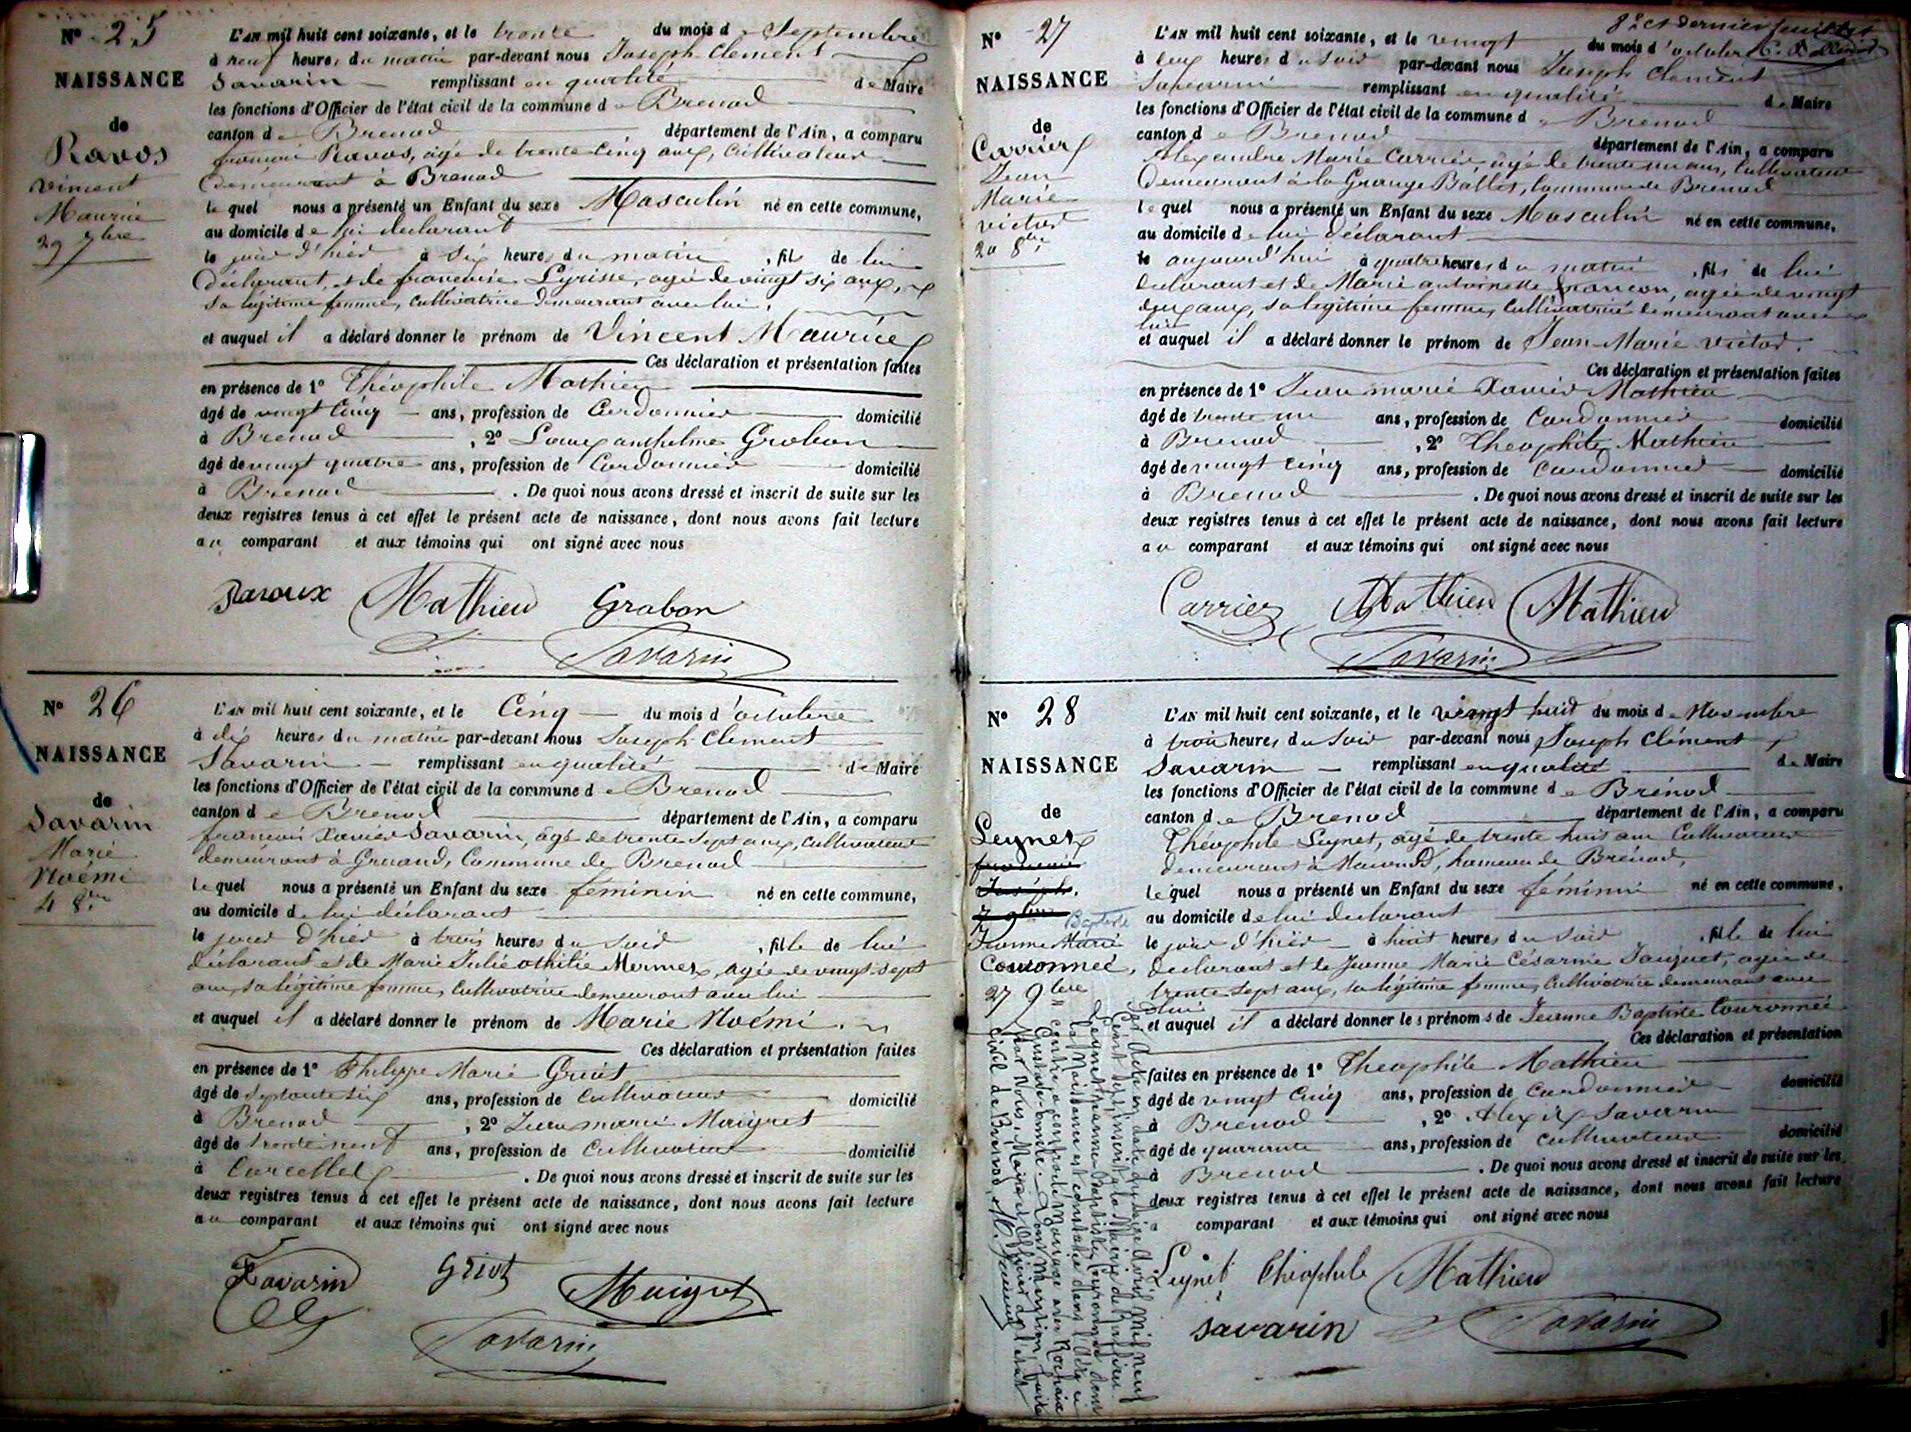 N° 25
NAISSANCE
de
Ravos
Vincent
Maurice
29 7bre
L'AN mil huit cent soixante, et le trente du mois de Septembre
à neuf heures du matin par-devant nous Joseph Clement
Savarin remplissant en qualité de Maire
les fonctions d'Officier de l'état civil de la commune de Brenod
canton de Brenod département de l'Ain, a comparu
françois Ravos, agé de trente cinq ans, Cultivateur
demeurant à Brenod
lequel nous a présenté un Enfant du sexe Masculin né en cette commune,
au domicile de lui déclarant
le jour d'hier à six heures du matin, fils de lui
déclarant, et de françoise Lyrisse, agée de vingt six ans,
sa légitime femme, Cultivatrice demeurant avec lui,
et auquel il a déclaré donner le prénom de Vincent Maurice
Ces déclaration et présentation faites
en présence de 1° Théophile Mathieu
âgé de vingt cinq ans, profession de Cordonnier domicilié
à Brenod, 2° Louis anthelme Grobon
âgé de vingt quatre ans, profession de Cordonnier domicilié
à Brenod. De quoi nous avons dressé et inscrit de suite sur les
deux registres tenus à cet effet le présent acte de naissance, dont nous avons fait lecture
au comparant et aux témoins qui ont signé avec nous
Mathieu Grobon
Savarin
N° 26
NAISSANCE
de
Savarin
Marie
Noémi
4 8bre
L'AN mil huit cent soixante, et le Cinq du mois d'octobre
à dix heures du matin par-devant nous Joseph Clement
Savarin remplissant en qualité de Maire
les fonctions d'Officier de l'état civil de la commune de Brenod
canton de Brenod département de l'Ain, a comparu
françois Xavier Savarin, agé de trente sept ans, Cultivateur
demeurant à Gruand, Commune de Brenod
lequel nous a présenté un Enfant du sexe feminin né en cette commune,
au domicile de lui déclarant
le jour d'hier à trois heures du Soir, fille de lui
déclarant et de Marie Julie othilie Mermet, agée de vingt sept
ans, sa légitime femme, Cultivatrice demeurant avec lui
et auquel il a déclaré donner le prénom de Marie Noémi.
Ces déclaration et présentation faites
en présence de 1° Philippe Marie Griot
âgé de Septante six ans, profession de Cultivateur domicilié
à Brenod, 2° Jean marie Maigret
âgé de trente neuf ans, profession de Cultivateur domicilié
à Corcelles. De quoi nous avons dressé et inscrit de suite sur les
deux registres tenus à cet effet le présent acte de naissance, dont nous avons fait lecture
au comparant et aux témoins qui ont signé avec nous
Savarin Griot Maigret
Savarin
8e et dernier feuillet
N° 27
NAISSANCE
de
Carrier
Jean
Marie
victor
20 8bre
L'AN mil huit cent soixante, et le vingt du mois d'octobre
à cinq heures du Soir par-devant nous Joseph Clement
Savarin remplissant en qualité de Maire
les fonctions d'Officier de l'état civil de la commune de Brenod
canton de Brenod département de l'Ain, a comparu
Alexandre Marie Carrier agé de trente un ans, Cultivateur
demeurant à la Grange Ballet, Commune de Brenod
lequel nous a présenté un Enfant du sexe Masculin né en cette commune,
au domicile de lui déclarant
le aujourd'hui à quatre heures du matin, fils de lui
declarant et de Marie antoinette françon, agée de vingt
deux ans, sa légitime femme, Cultivatrice demeurant avec
lui
et auquel il a déclaré donner le prénom de Jean Marie victor.
Ces déclaration et présentation faites
en présence de 1° Jean marie Xavier Mathieu
âgé de trente un ans, profession de Cordonnier domicilié
à Brenod, 2° Théophile Mathieu
âgé de vingt cinq ans, profession de Cordonnier domicilié
à Brenod. De quoi nous avons dressé et inscrit de suite sur les
deux registres tenus à cet effet le présent acte de naissance, dont nous avons fait lecture
au comparant et aux témoins qui ont signé avec nous
Carrier Mathieu Mathieu
Savarin
N° 28
NAISSANCE
de
Leynet
françois
Joseph.
Baptiste
Jeanne Marie
Couronnée,
27 9bre
L'AN mil huit cent soixante, et le vingt huit du mois de Novembre
à trois heures du Soir par-devant nous Joseph Clément
Savarin remplissant en qualité de Maire
les fonctions d'Officier de l'état civil de la commune de Brénod
canton de Brenod département de l'Ain, a comparu
Théophile Leynet, agé de trente huit ans Cultivateur
demeurant à, hameau de Brénod,
lequel nous a présenté un Enfant du sexe féminin né en cette commune,
au domicile de lui declarant
le jour d'hier à huit heures du Soir, fille de lui
declarant et de Jeanne Marie Césarine Janquet, agée de
trente sept ans, sa légitime femme, Cultivatrice demeurant avec
lui
et auquel il a déclaré donner les prénoms de Jeanne Baptiste Couronnée
Ces déclaration et présentation
faites en présence de 1° Theophile Mathieu
âgé de vingt Cinq ans, profession de Cordonnier domicilié
à Brenod, 2° Alexis Savarin
âgé de quarante ans, profession de Cultivateur domicilié
à Brenod. De quoi nous avons dressé et inscrit de suite sur les
deux registres tenus à cet effet le présent acte de naissance, dont nous avons fait lecture
a comparant et aux témoins qui ont signé avec nous
Leynet Théophile Mathieu
savarin Savarin